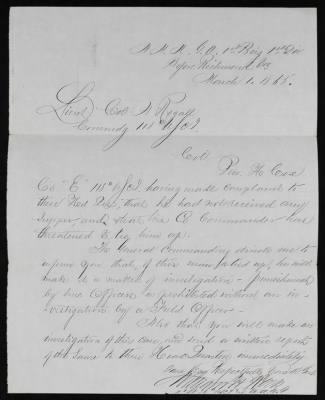 Hd. Qrs. 1st Brig 1st Div
Before Richmond Va
March 1. 1865.
Lieut Col
Commdg 118"
Col
Priv. H. Cox
Co "E" 118" having made complaint to
these Head Qrs., that he had not received any
and that his Co Commander has
threatened to tie him up:
The General Commanding directs me to
inform you that, if this man is tied up, he will
make it a matter of investigation - punishment
by Line Officers is prohibited without an in-
vestigation by a Field Officer -
Also that you will make an
investigation of this case, and send a written report
of the same to these Head Quarters immediately
I am Col Very Respectfully Your Obt Svt